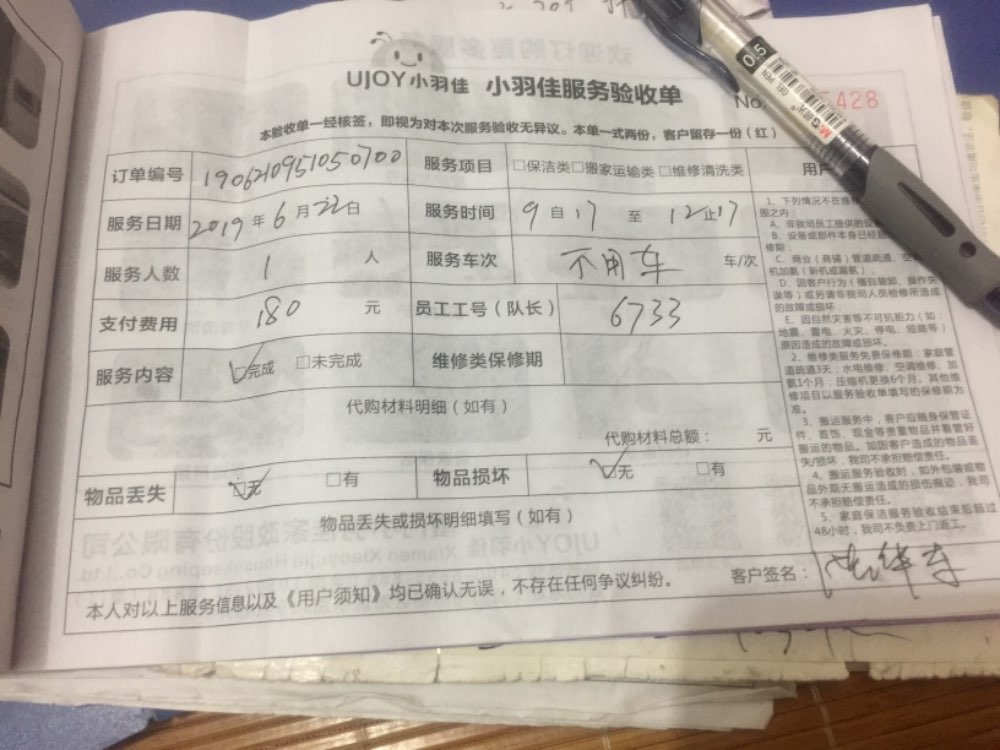 UJOY小羽佳 小羽佳服务验收单
No. 5428
本验收单一经核签，即视为对本次服务验收无异议。本单一式两份，客户留存一份（红）
订单编号 1906210951050700 服务项目 □保洁类□搬家运输类□维修清洗类
服务日期 2019年6月22日 服务时间 9自17至12止17
服务人数 1 人 服务车次 不用车 车/次
支付费用 180 元 员工工号（队长） 6733
服务内容 □完成 □未完成 维修类保修期
代购材料明细（如有）
代购材料总额： 元
物品丢失 □无 □有 物品损坏 □无 □有
物品丢失或损坏明细填写（如有）
本人对以上服务信息以及《用户须知》均已确认无误，不存在任何争议纠纷。
客户签名：
用户
1、下列情况不在维修
围之内：
A、非我司员工提供的
B、设备或部件本身已经超
修期；
C、商业（商铺）管道疏通，空
机加氨（新机或漏氨）；
D、因客户行为（擅自装卸、操作失
误等）或另请非我司人员检修所造成
的故障或损坏；
E、因自然灾害等不可抗拒力（如：
地震、雷电、火灾、停电、短路等）
原因造成的故障或损坏。
2、维修类服务免费保修期：家庭管
道疏通3天；水电维修、空调维修、加
氨1个月；压缩机更换6个月。其他维
修项目以服务验收单填写的保修期为
准。
3、搬运服务中，客户应随身保管证
件、首饰、现金等贵重物品并看管好
搬运的物品。如因客户造成的物品丢
失/损坏，我司不承担赔偿责任。
4、搬运服务验收时，如外包装或物
品外观无搬运造成的损伤痕迹，我司
不承担赔偿责任。
5、家庭保洁服务验收结束后超过
48小时，我司不负责上门返工。
0.5
GEL PEN
M&G